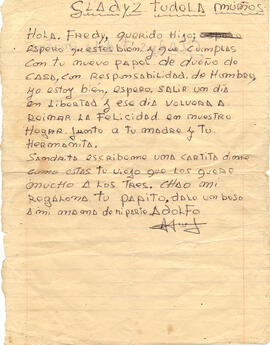 GLADYZ TUDELA MUÑOS
HOLA. FREDY, QUERIDO HIJO;
ESPERO QUESTES BIEN; Y QUE CUMPLAS
CON TU NUEVO PAPEL DE DUEÑO DE
CASA, CON RESPONSABILIDAD. DE HOMBRE,
YO ESTOY BIEN, ESPERO, SALIR UN DIA
EN LIBERTAD Y ESE DIA VOLVERA A
REINAR LA FELICIDAD EN NUESTRO
HOGAR. JUNTO A TU MADRE Y TU
HERMANITA.
SANDRITA ESCRIBEME UNA CARTITA DIME
COMO ESTAS TU VIEJO QUE LOS QUIERE
MUCHO A LOS TRES. CHAO MI
REGALONA TU PAPITO, DALE UN BESO
A MI MAMA DE MI PARTE ADOLFO